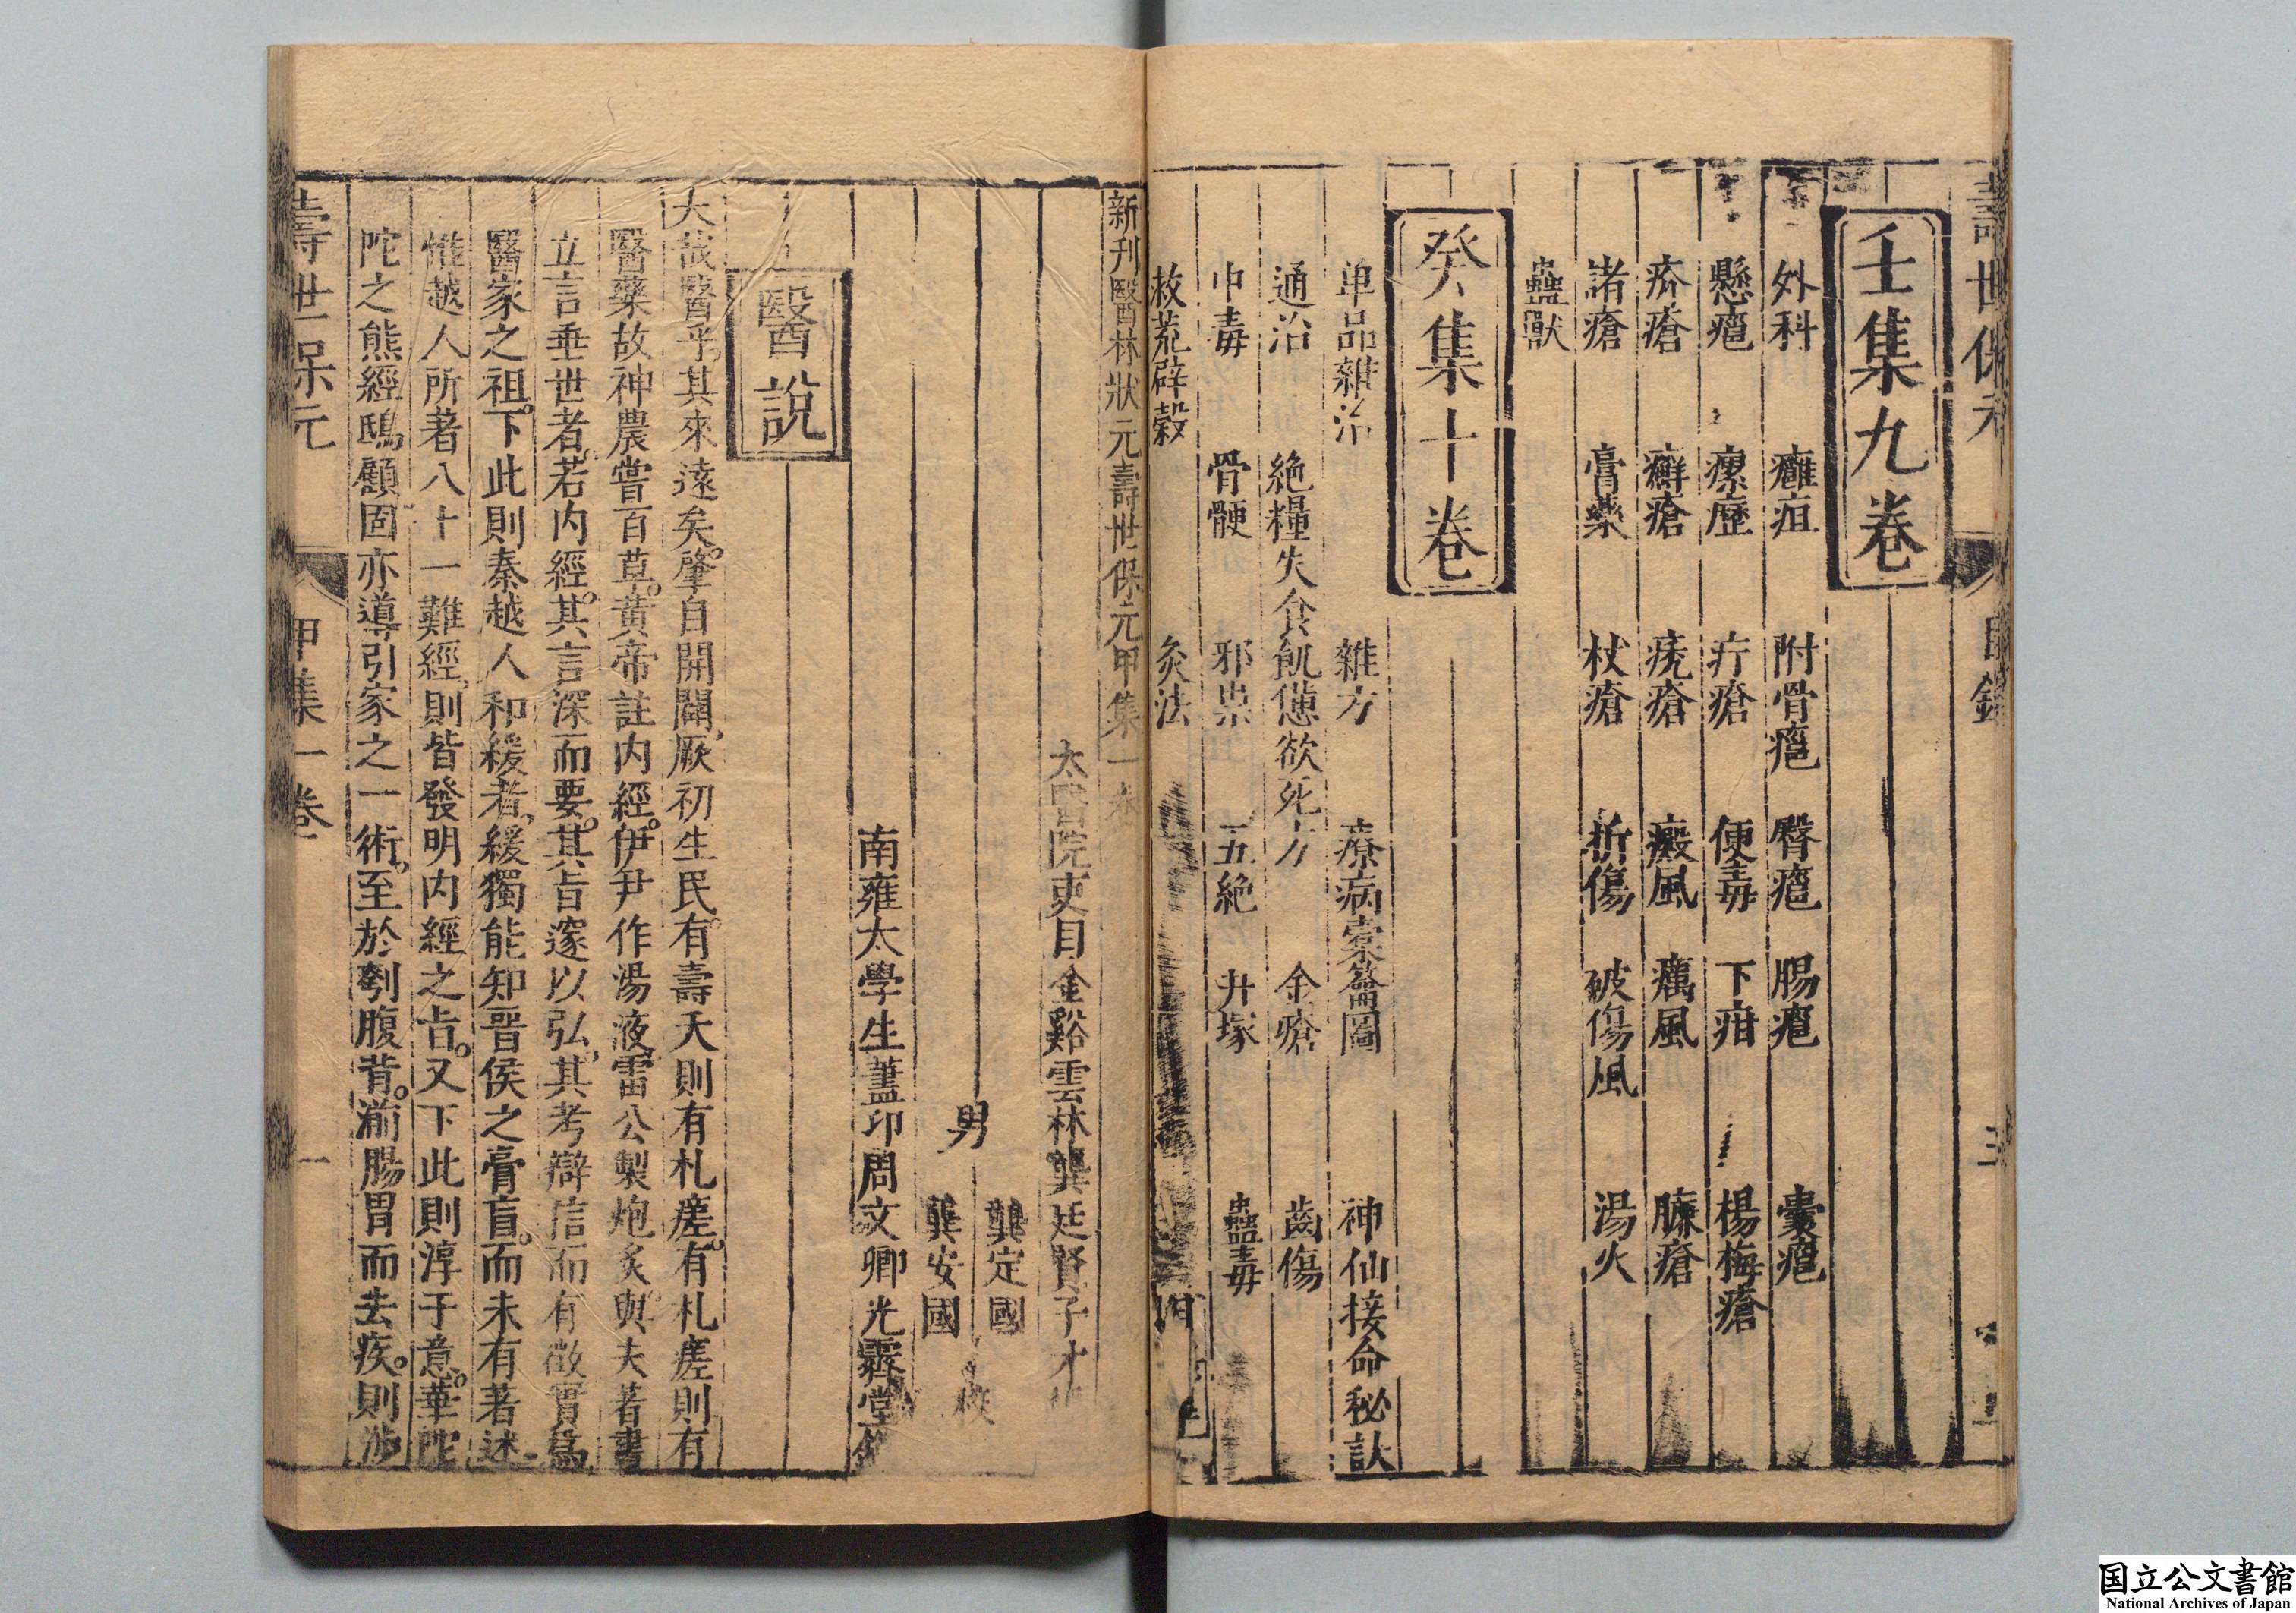 壽世保元 目錄 三
壬集九卷
外科 癰疽 附骨癰 臀癰 腸癰 囊癰
懸癰 瘰癧 疔瘡 便毒 下疳 楊梅瘡
疥瘡 癬瘡 禿瘡 癜風 癘風 臁瘡
諸瘡 膏藥 杖瘡 折傷 破傷風 湯火
蟲獸
癸集十卷
单品雜治 雜方 療病橐籥圖 神仙接命秘訣
通治 絶糧失食飢憊欲死方 金瘡 齒傷
中毒 骨骾 邪祟 五絶 井塚 蠱毒
救荒辟榖 灸法
新刊醫林狀元壽世保元甲集一卷
太醫院吏目金谿雲林龔廷賢子才
龔定國
男 校
龔安國
南雍太學生藎卬周文卿光霽堂
醫說
大哉醫乎,其來遠矣。肇自開闢,厥初生民。有壽夭則有札瘥。有札瘥則有
醫藥故神農嘗百草。黄帝註内經。伊尹作湯液雷公製炮炙。與夫著書
立言垂世者。若内經。其言深而要。其旨邃以弘,其考辯信而有徵實爲
醫家之祖。下此則秦越人和緩者,緩獨能知晋侯之膏肓。而未有著述
惟越人所著八十一難經,則皆發明内經之旨。又下此則淳于意。華陀
陀之熊經鴟顧固亦導引家之一術。至於刳腹背。湔腸胃而去疾。則涉
壽世保元 甲集一卷 一
国立公文書館
National Archives of Japan